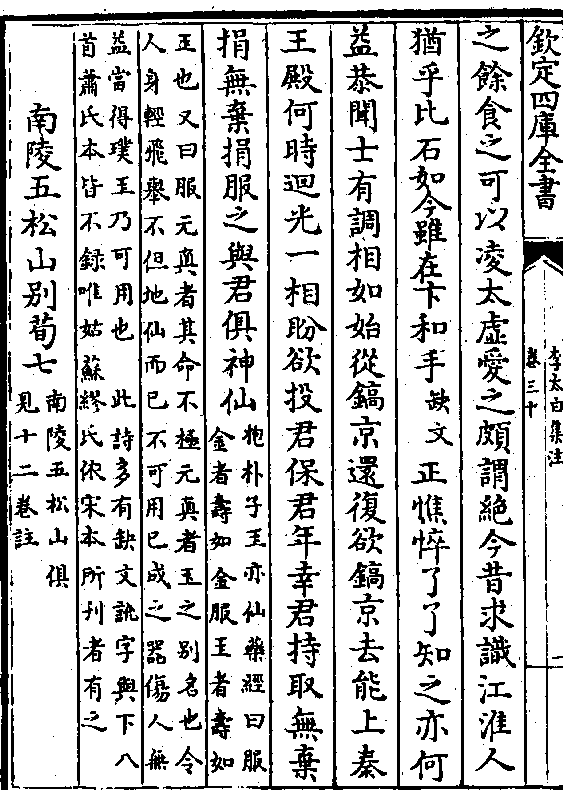 欽定四庫全書
李太白集注
卷三十
之餘食之可以凌太虛愛之頗謂絶今昔求識江淮人
猶乎比石如今雖在卞和手缺文正憔悴了了知之亦何
益恭聞士有調相如始從鎬京還復欲鎬京去能上秦
王殿何時迴光一相盼欲投君保君年幸君持取無棄
捐無棄捐服之與君俱神仙
抱朴子玉亦仙藥經曰服
金者壽如金服玉者壽如
玉也又曰服元真者其命不極元真者玉之别名也令
人身輕飛舉不但地仙而已不可用已成之器傷人無
益當得璞玉乃可用也 此詩多有缺文訛字與下八
首蕭氏本皆不録唯姑蘇繆氏依宋本所刋者有之
南陵五松山别荀七
南陵五松山俱
見十二卷註